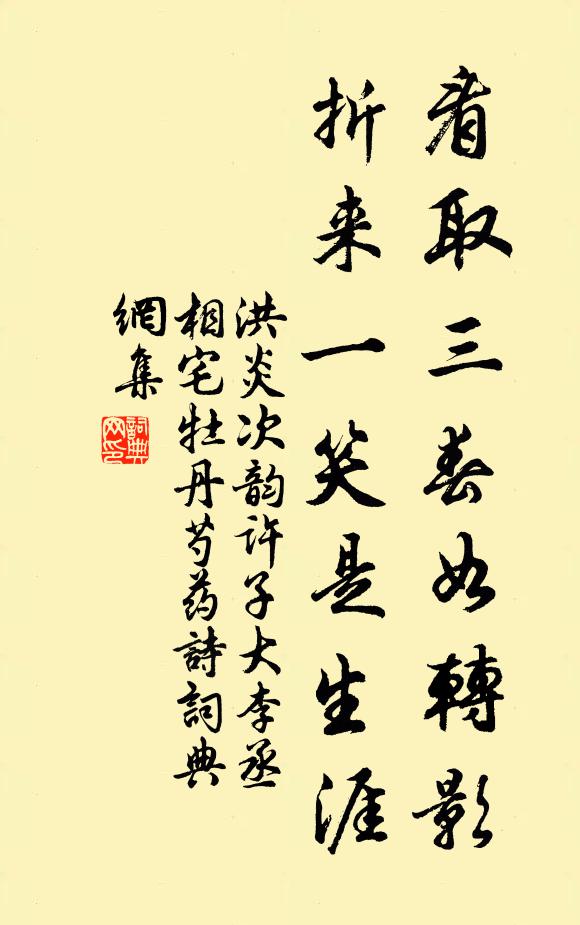 看取三春如轉影
折来一笑是生涯
洪炎次韵許子大李丞
相宅牡丹芍药詩詞典
網集
詞典
网印